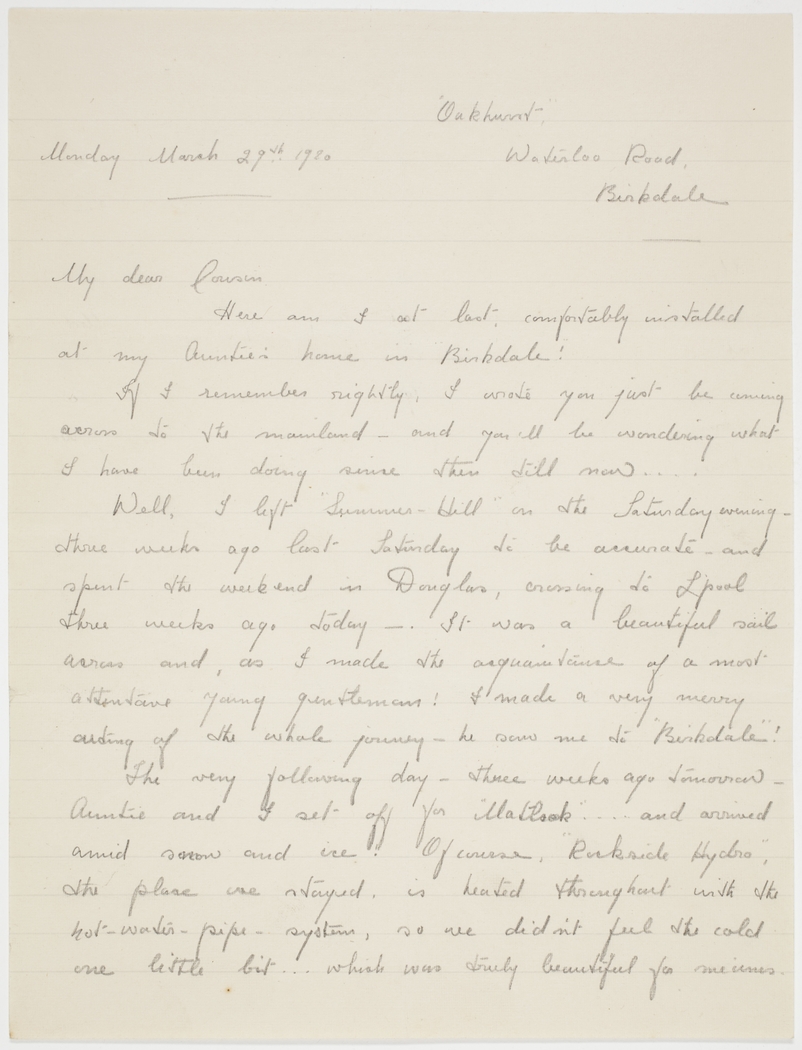 "Oakhurst",
Monday March 29th 1920
Waterloo Road,
Birkdale
My dear Cousin
Here am I at last, comfortably installed
at my Auntie's home in "Birkdale"!
If I remember rightly, I wrote you just be coming
across to the mainland – and you'll be wondering what
I have been doing since then till now.....
Well, I left "Summer-Hill" on the Saturday evening –
three weeks ago last Saturday to be accurate – and
spent the weekend in Douglas, crossing to L'pool
three weeks ago today –. It was a beautiful sail
across and, as I made the acquaintance of a most
attentive young gentleman! I made a very merry
outing of the whole journey – he saw me to "Birkdale"!
The very following day – three weeks ago tomorrow –
Auntie and I set off for "Matlock".... and arrived
amid snow and ice! Of course, "Rockside Hydro",
the place we stayed, is heated throughout with the
hot-water-pipe-system, so we didn't feel the cold
one little bit... which was truly beautiful for